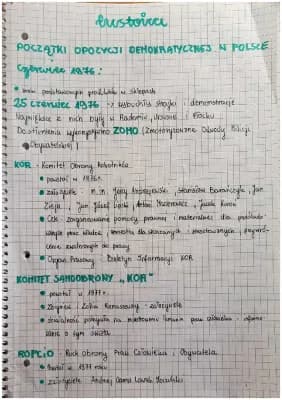 POCZĄTKI OPOZYCJI DEMOKRATYCZNEJ W POLSCE
Czerwiec 1976:
• brak podstawowych produktów w sklepach
25 czerwiec 1976 - wybuchły strajki i demonstracje
Największe z nich były w Radomiu, Ursusie i Płocku
Do stłumienia wykorzystano ZOMO (Zmotoryzowane Odwody Milicji
Obywatelskiej)
KOR - Komitet Obrony Robotników
• powstał w 1976r.
• założyciele - m.in. Jerzy Andrzejewski, Stanisław Barańczak, Jan
Zieja, Jan Józef Lipski, Antoni Macierewicz, Jacek Kuroń
• Cel - zorganizowanie pomocy prawnej i materialnej dla
władze
zwolnionych do pracy
• Organ Prasowy - Biuletyn Informacyjny KOR
KOMITET SAMOOBRONY "KOR"
• powstał w 1977r.
• Zbigniew i Zofia Romaszewscy - założyciele
o tym świata
ROPCiO - Ruch Obrony Praw Człowieka i Obywatela
• Powstał w 1977 roku
• założyciele Andrzej Czuma Leszek Moczulski